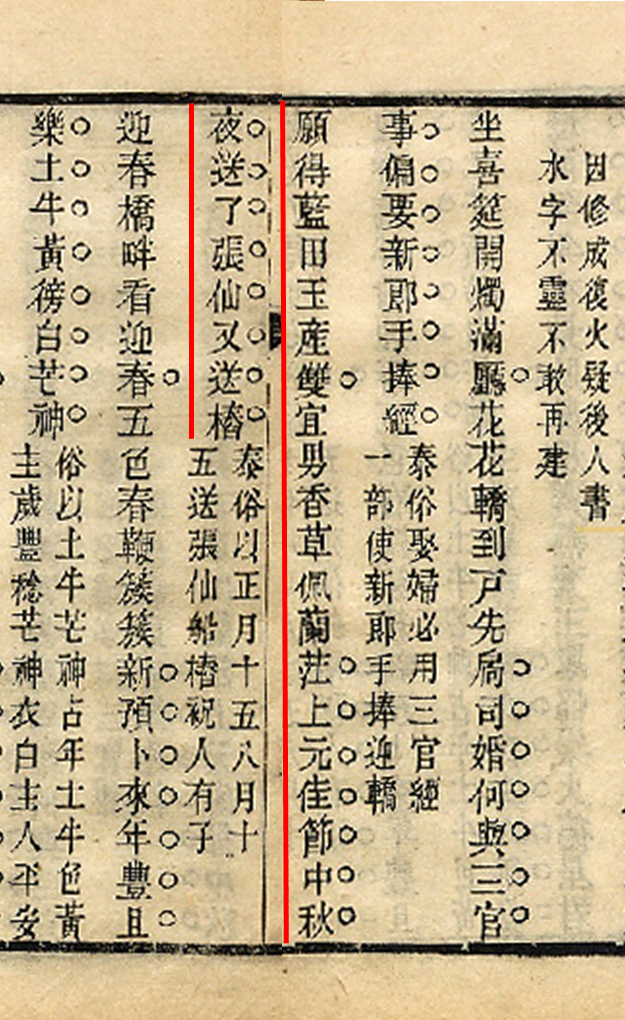 因修成復火疑後人書
水字不靈不敢再建
坐喜筵開燭滿廳花花轎到戸先局司婚何與三官
事偏要新郎手捧經
泰俗娶婦必用三官經
一部使新郎手捧迎轎
願得藍田玉産雙宜男香草佩蘭茳上元佳節中秋
夜送了張仙又送樁
泰俗以正月十五八月十
五送張仙船樁祝人有子
迎春橋畔看迎春五色春鞭簇簇新預卜來年豐且
樂土牛黃徬白芒神
俗以土牛芒神占年土牛色黃
主歲豐稔芒神衣白主人平安